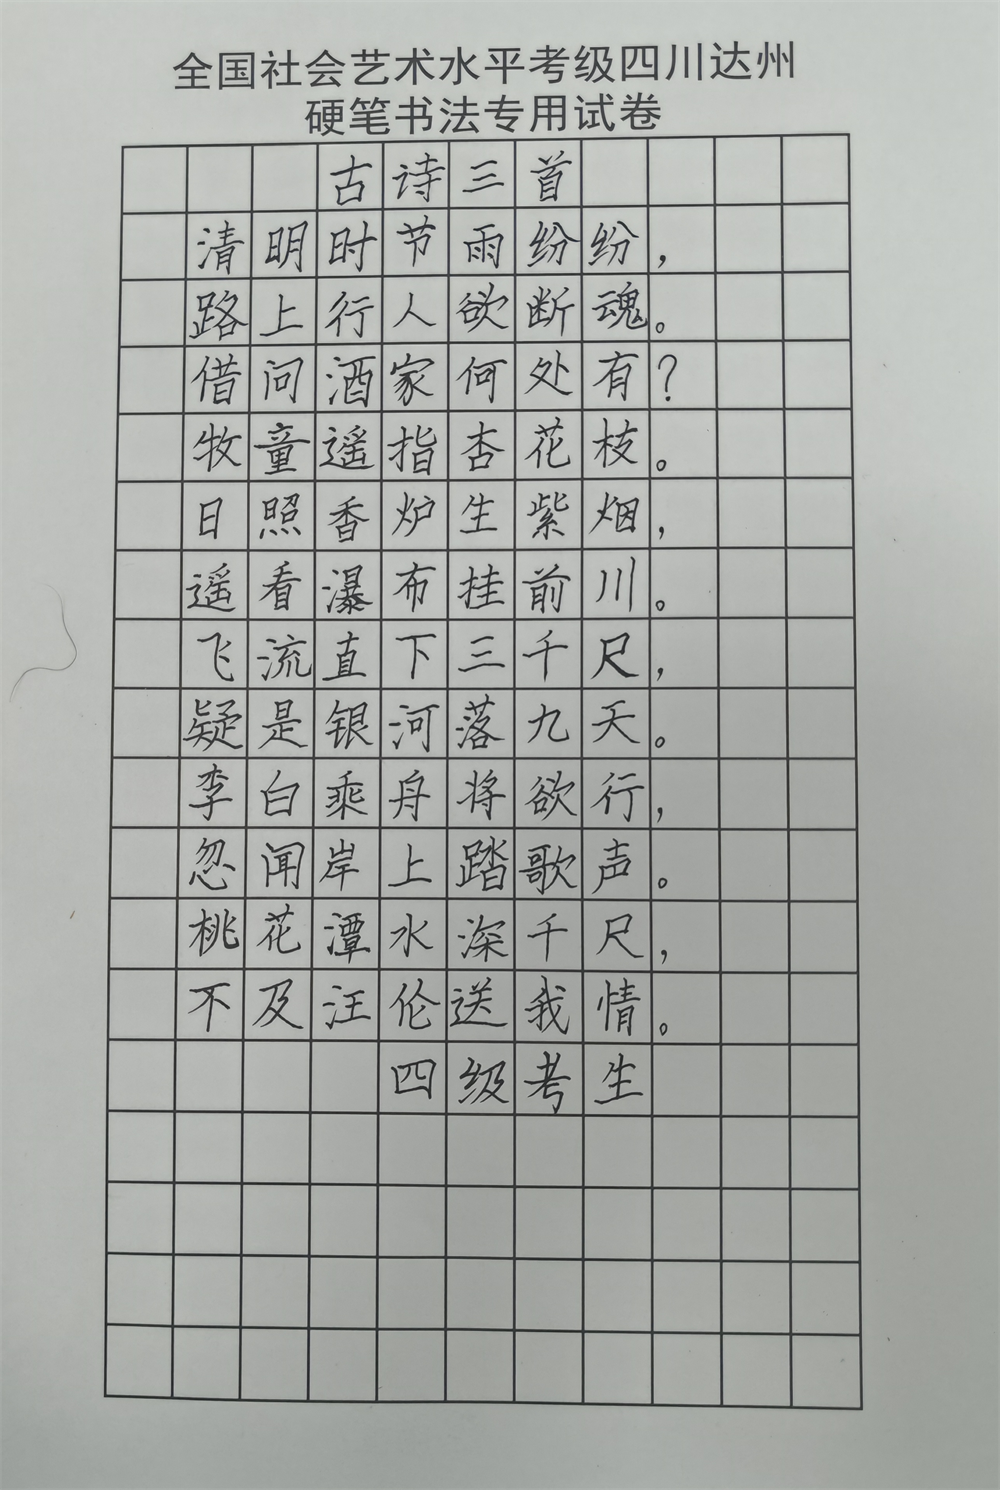 全国社会艺术水平考级四川达州
硬笔书法专用试卷
古诗三首
清明时节雨纷纷，
路上行人欲断魂。
借问酒家何处有？
牧童遥指杏花枝。
日照香炉生紫烟，
遥看瀑布挂前川。
飞流直下三千尺，
疑是银河落九天。
李白乘舟将欲行，
忽闻岸上踏歌声。
桃花潭水深千尺，
不及汪伦送我情。
四级考生